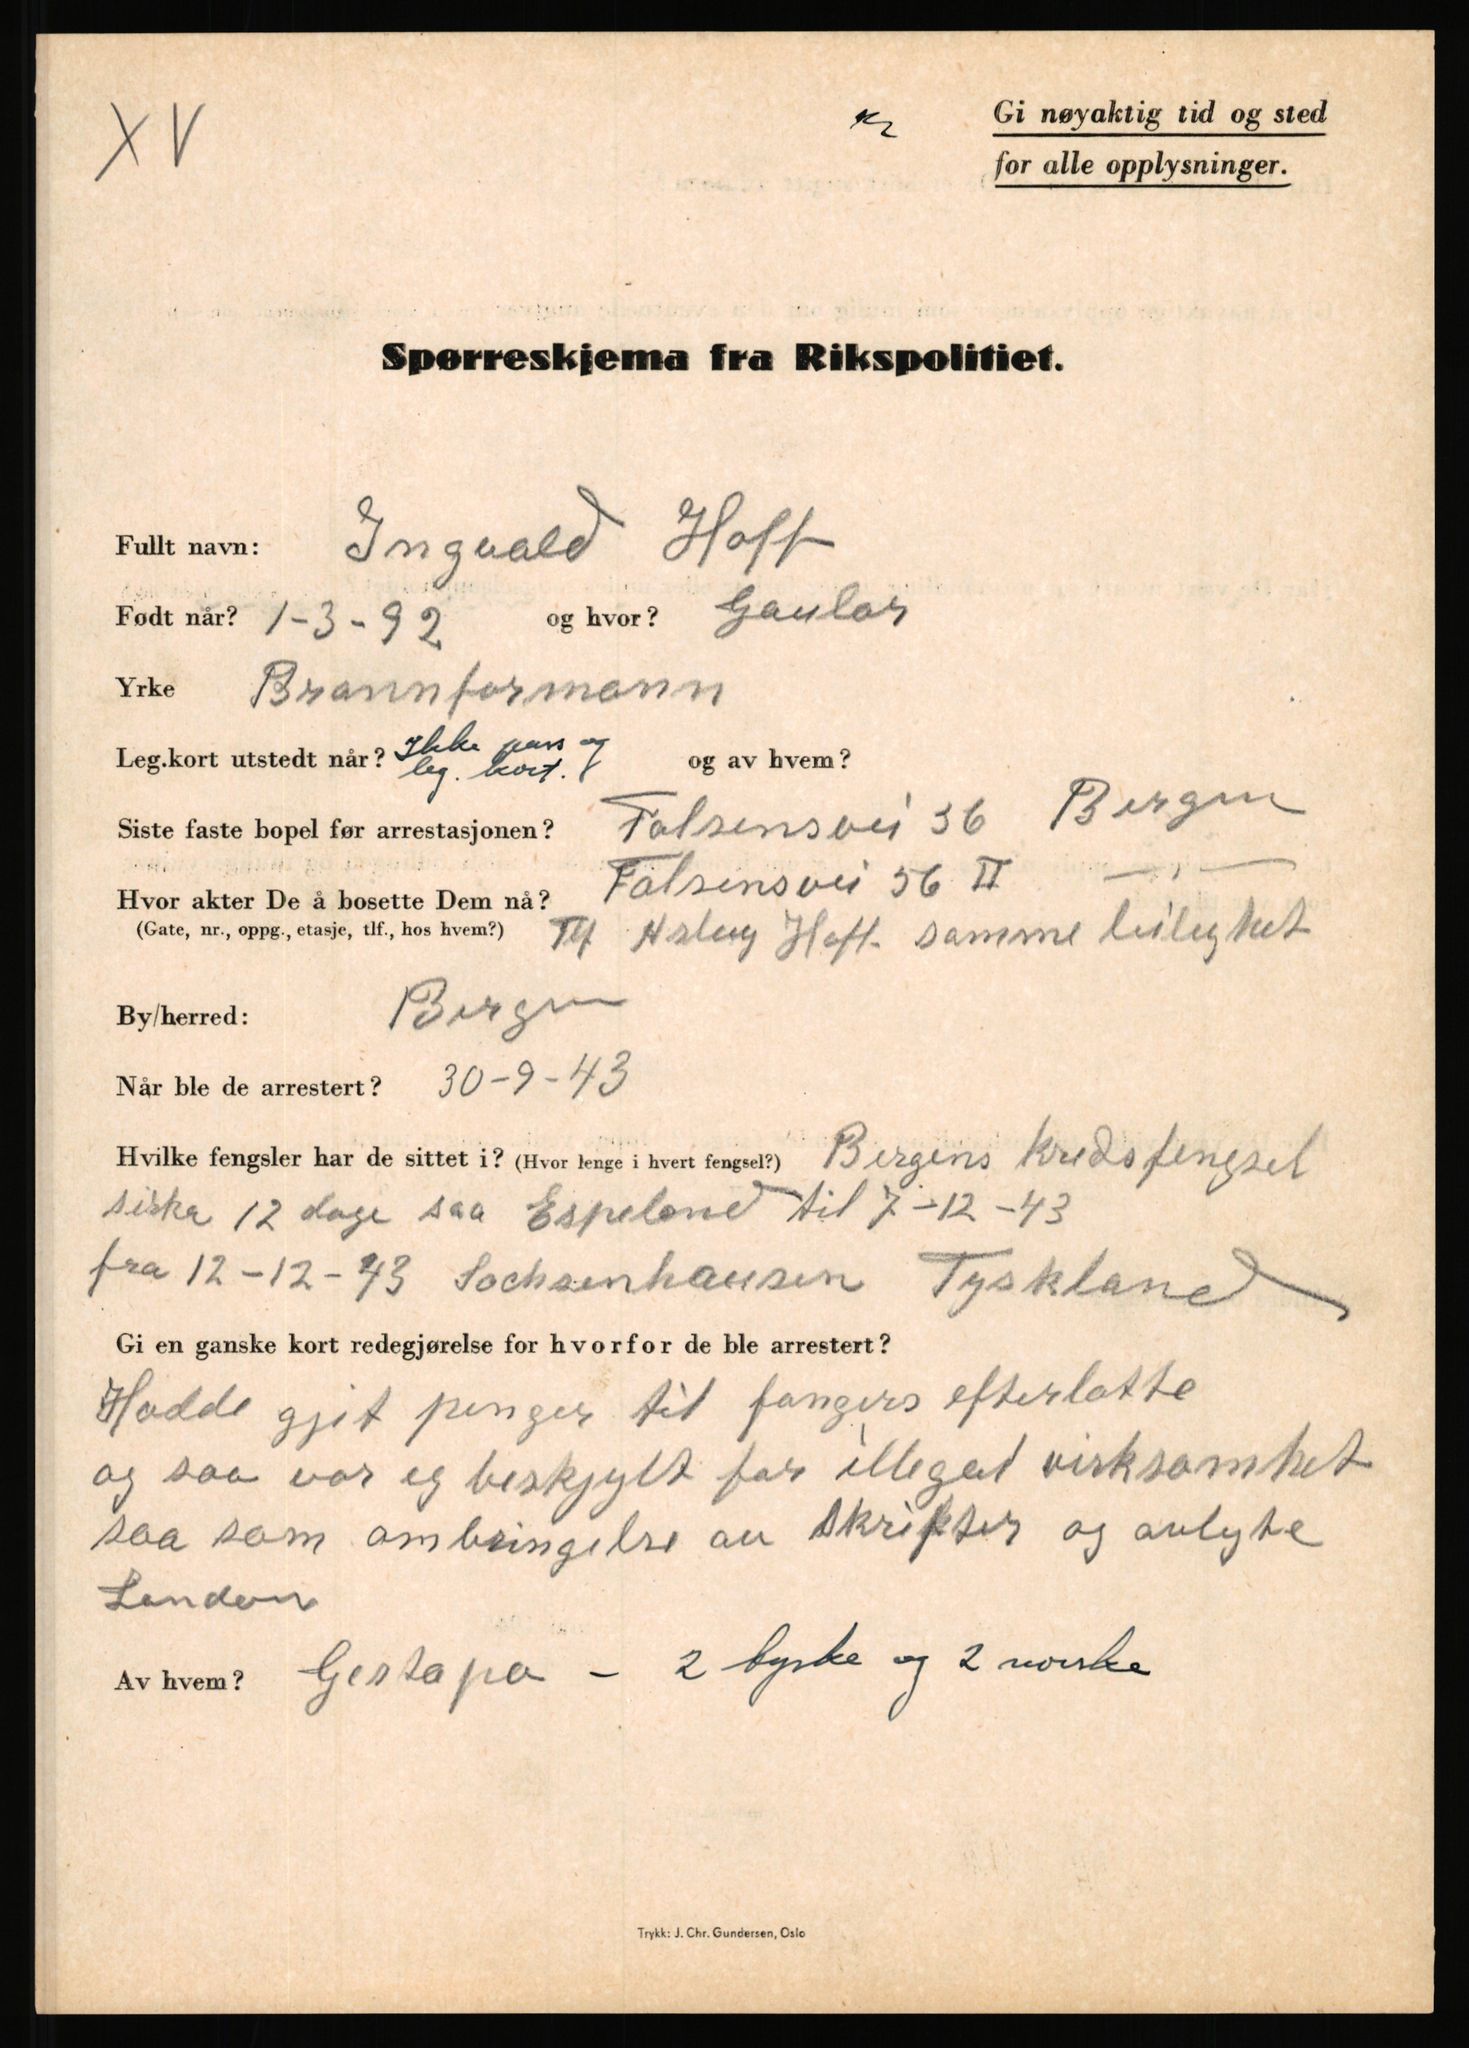 XV
Gi nøyaktig tid og sted
for alle opplysninger.
Spørreskjema fra Rikspolitiet.
Fullt navn: Ingvald Hoff
Født når? 1-3-92 og hvor? Gaular
Yrke Brannformann
Leg.kort utstedt når? Ikke pass og og av hvem?
leg. kort.
Siste faste bopel før arrestasjonen? Falsensvei 36 Bergen
Hvor akter De å bosette Dem nå? Falsensvei 36 II —„—
(Gate, nr., oppg., etasje, tlf., hos hvem?) Tlf Aslaug Hoff. samme leilighet
By/herred: Bergen
Når ble de arrestert? 30-9-43
Hvilke fengsler har de sittet i? (Hvor lenge i hvert fengsel?) Bergens kredsfengsel
siska 12 dage saa Espeland til 7-12-43
fra 12-12-43 Sachsenhausen Tyskland
Gi en ganske kort redegjørelse for hvorfor de ble arrestert?
Hadde gjit penger til fangers efterlatte
og saa var eg beskjylt for illegal virksomhet
saa som ombringelse av skrifter og avlyte
London
Av hvem? Gestapo - 2 tyske og 2 norske
Trykk: J. Chr. Gundersen, Oslo